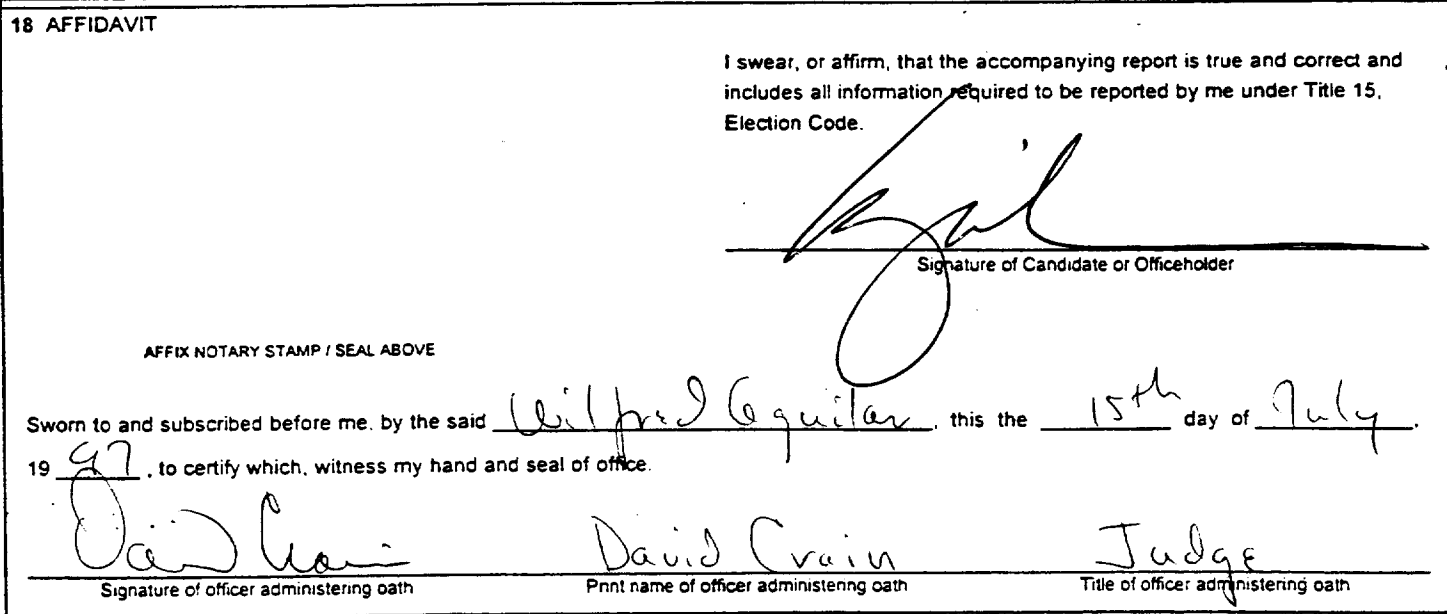 18 AFFIDAVIT
I swear, or affirm, that the accompanying report is true and correct and
includes all information required to be reported by me under Title 15,
Election Code.
Signature of Candidate or Officeholder
AFFIX NOTARY STAMP / SEAL ABOVE
Sworn to and subscribed before me, by the said Wilfred Aguilar, this the 15th day of July,
19 97, to certify which, witness my hand and seal of office.
David Crain David Crain Judge
Signature of officer administering oath Print name of officer administering oath Title of officer administering oath